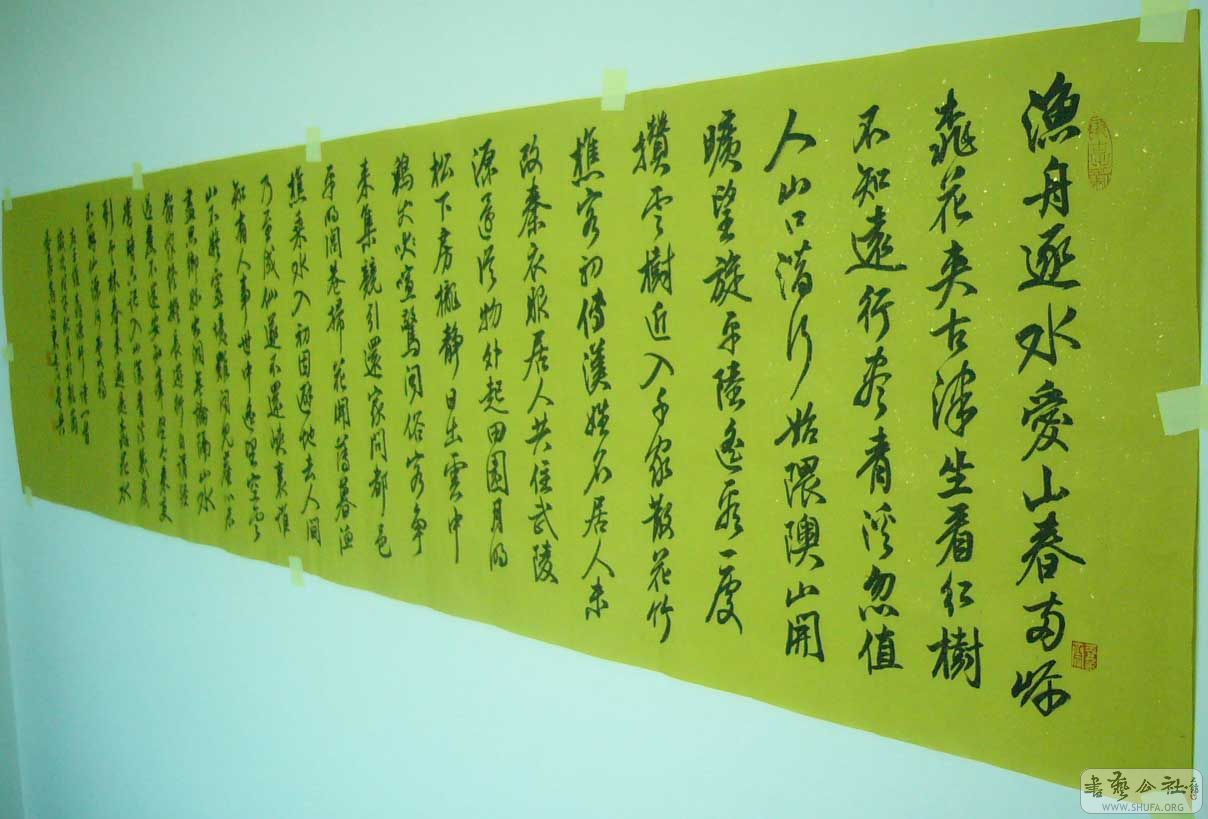 漁舟逐水愛山春兩岸
桃花夾古津坐看紅樹
不知遠行盡青溪忽值
人山口潛行始隈隩山開
曠望旋平陸遙看一處
攢雲樹近入千家散花竹
樵客初傳漢姓名居人未
改秦衣服居人共住武陵
源還從物外起田園月明
松下房櫳靜日出雲中
鷄犬吠喧驚聞俗客爭
來集競引還家問都邑
平明閭巷掃花開薄暮漁
樵乘水入初因避地去人間
乃至成仙遂不還峽裏誰
知有人事世中遙望空雲
山不疑靈境難聞見塵心未
盡思鄉縣出洞無論隔山水
辭家終擬長遊衍自謂經
過舊不迷安知峰壑今來變
當時只記入山深青溪幾度
到雲林春來遍是桃花水
不辨仙源何處尋
書藝公社
WWW.SHUFA.ORG